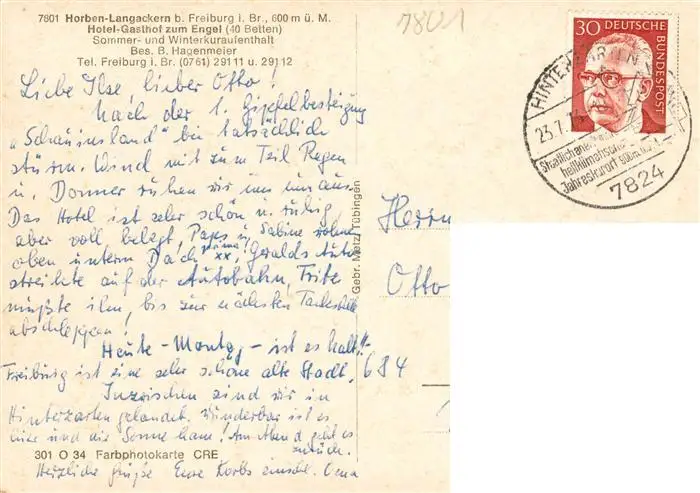 7801 Horben-Langackern b. Freiburg i. Br., 600 m ü. M.
Hotel-Gasthof zum Engel (40 Betten)
Sommer- und Winterkuraufenthalt
Bes. B. Hagenmeier
Tel. Freiburg i. Br. (0761) 29111 u. 29112
Liebe Ilse, lieber Otto!
Nach der 1. Gipfelbesteigung
"Schauinsland" bei tatsächlich
stürm. Wind mit zum Teil Regen
u. Donner ruhen wir uns nun aus.
Das Hotel ist sehr schön u. ruhig,
aber voll belegt, Papes u. Sabine wohnen
oben unterm Dach prima xx, Geralds Auto
streikte auf der Autobahn, Fritz
mußte ihn, bis zur nächsten Tankstelle
abschleppen!
Heute - Montag - ist es kalt!!
Freiburg ist eine sehr schöne alte Stadt.
Inzwischen sind wir in
Hinterzarten gelandet. Wunderbar ist es
hier und die Sonne kam! Am Abend geht es
zurück.
301 O 34 Farbphotokarte CRE
Herzliche Grüße Eure Korbs einschl. Oma
Gebr. Metz, Tübingen
7801
30 DEUTSCHE
BUNDESPOST
HINTERZARTEN
23.7.
Staatlich anerkannter
heilklimatischer
Jahreskurort
7824
Herrn
Otto
684